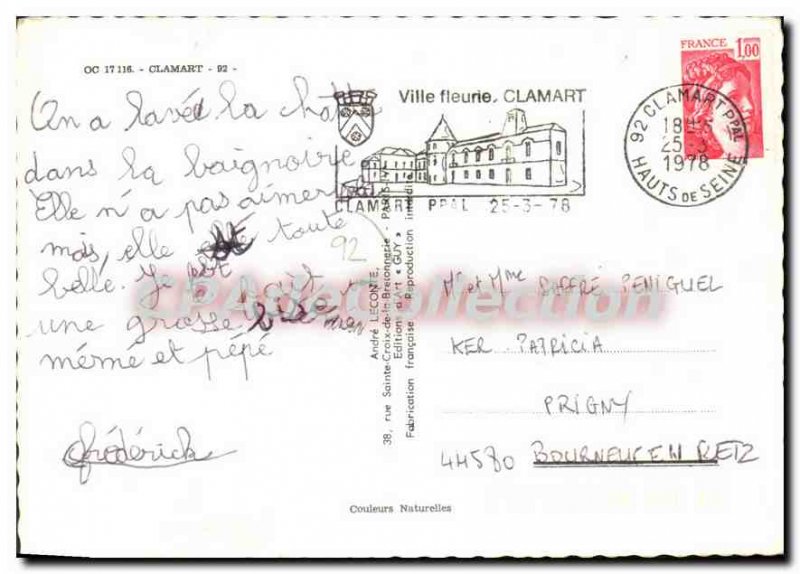 OC 17 116. - CLAMART - 92 -
On a lavé la chatte
dans la baignoire.
Elle n'a pas aimer
mais, elle est toute
belle. Je
une grosse bise
mémé et pépé
frédérick
92
Ville fleurie. CLAMART
CLAMART PPAL 25-3-78
FRANCE 1,00
92 CLAMART PPAL
18H
25-3
1978
HAUTS DE SEINE
André LECONTE,
38, rue Sainte-Croix-de-la-Bretonnerie - PARIS
Editions d'Art « GUY »
Fabrication française - Reproduction interdite
Mr et Mme JOFFRÉ PENIGUEL
KER. PATRICIA
PRIGNY
44580 BOURNEUF EN RETZ
Couleurs Naturelles
CPA Collection